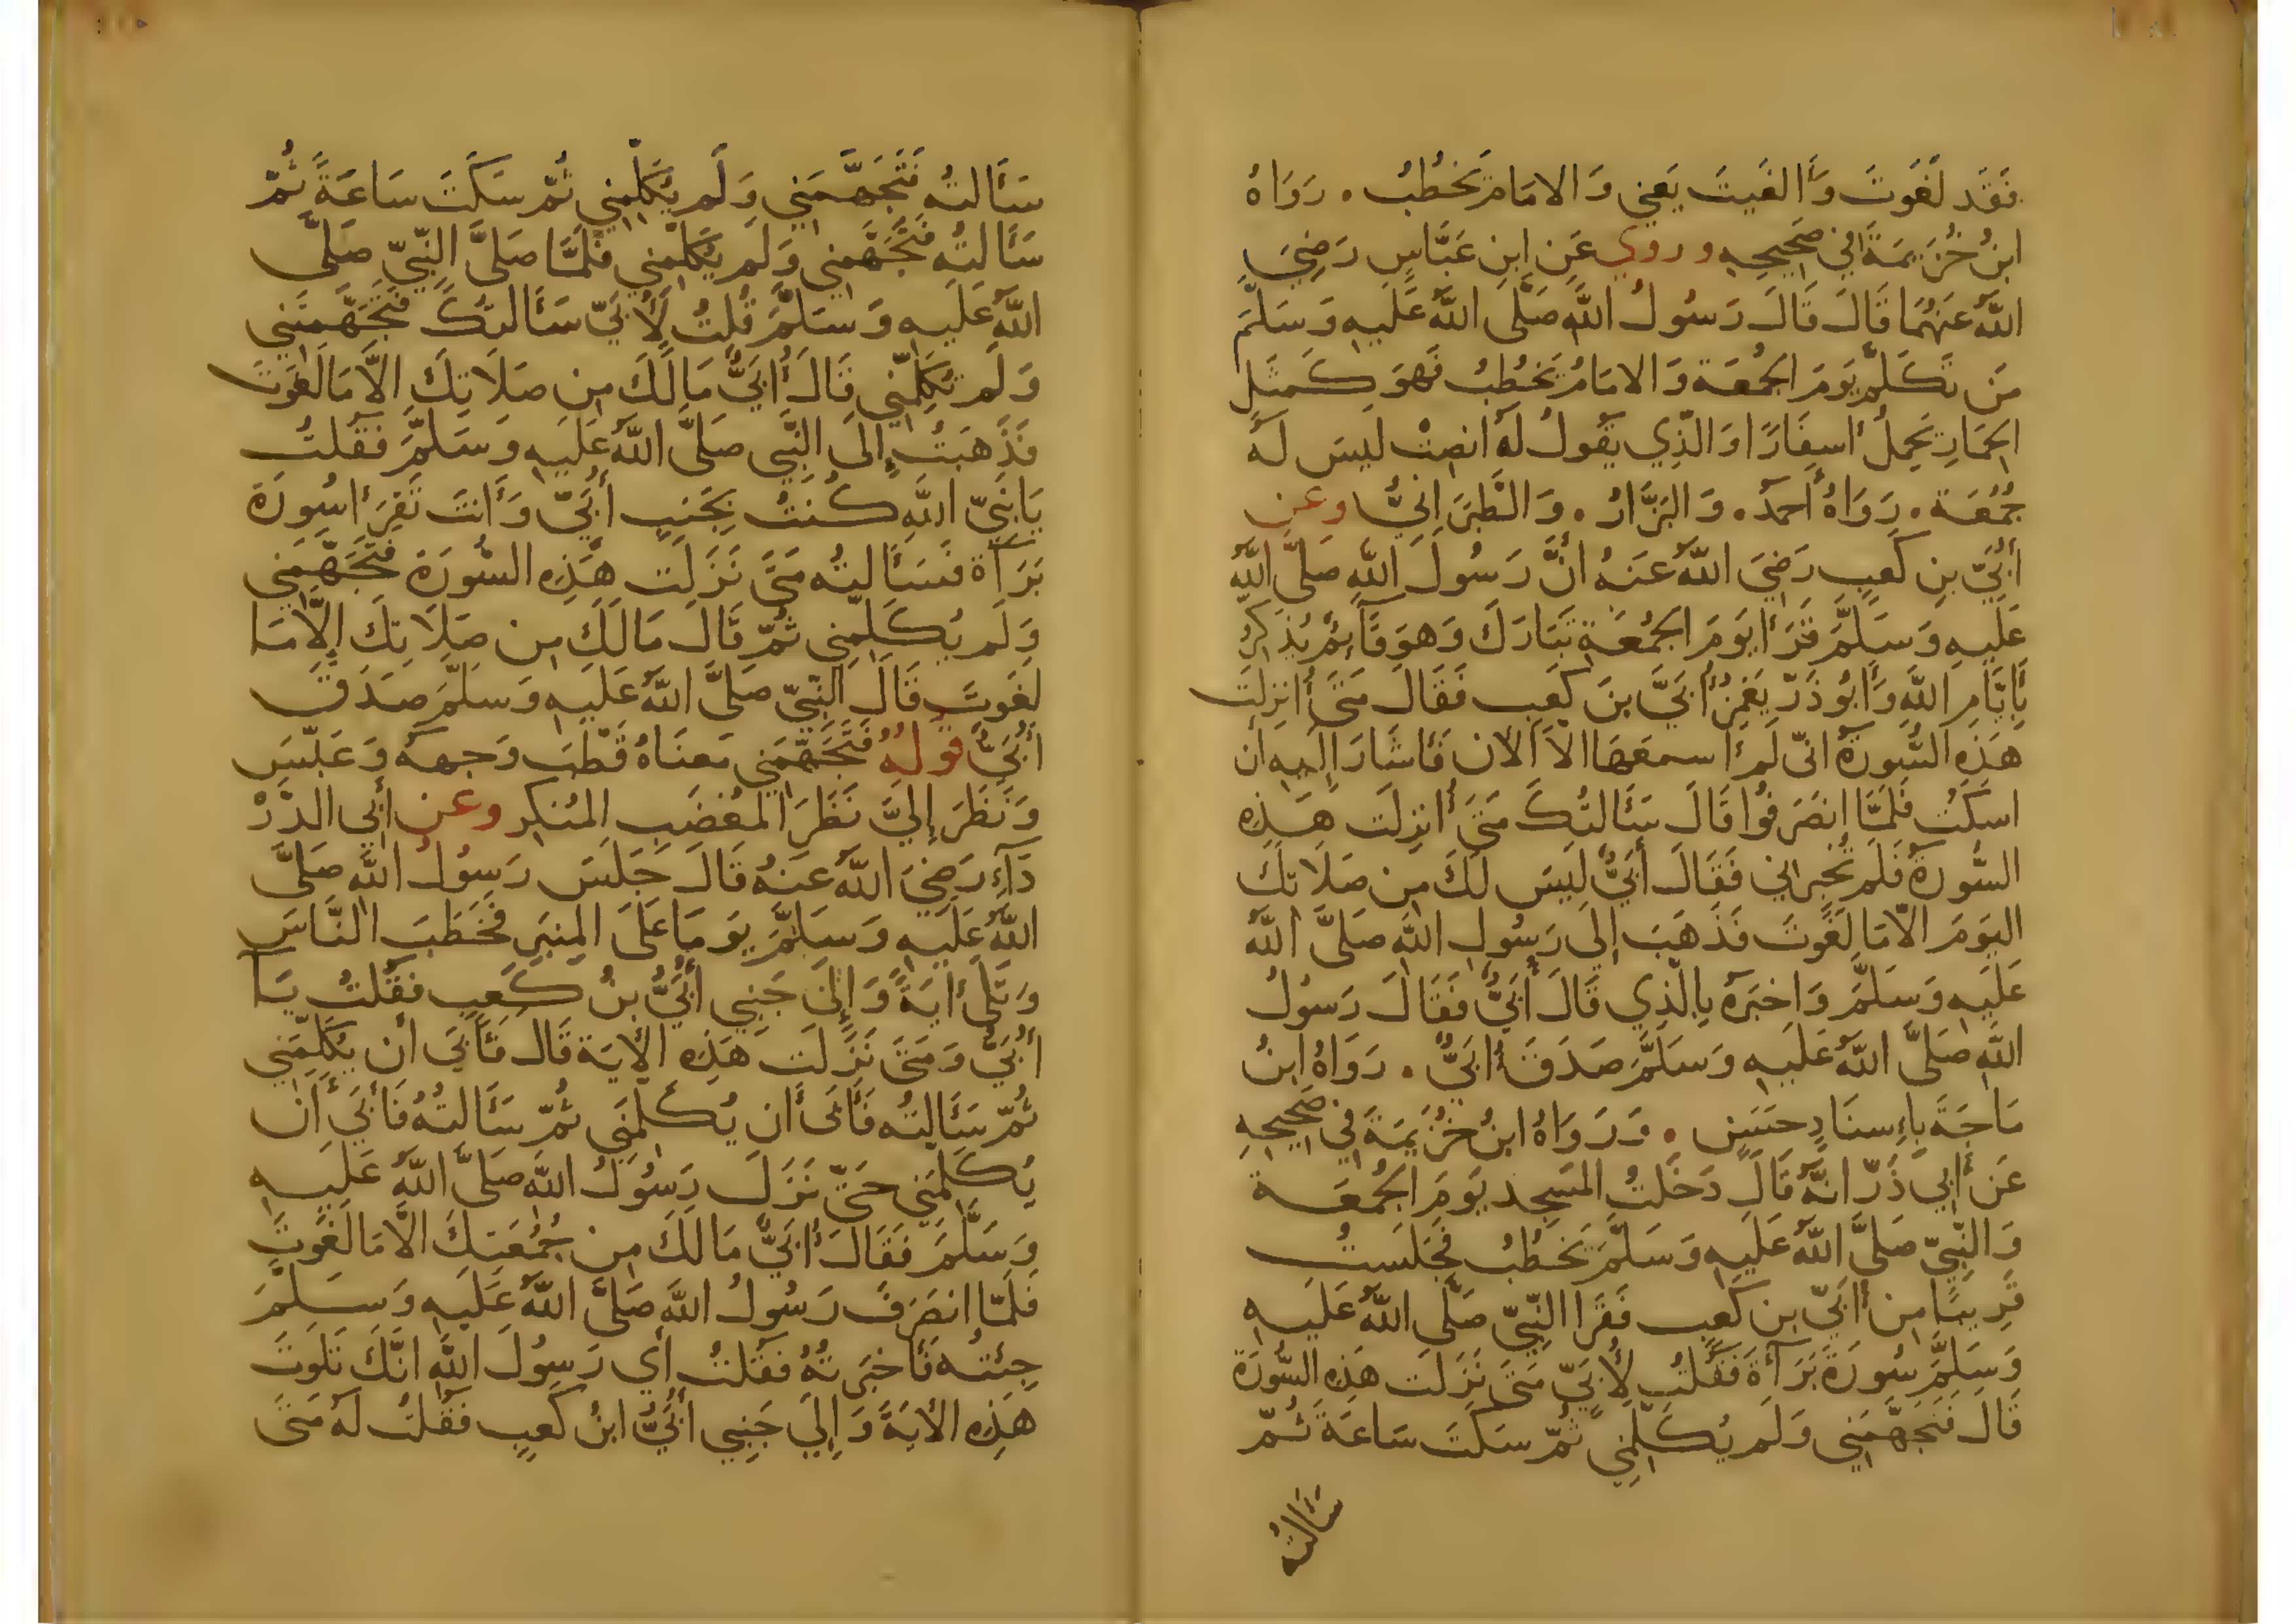 فَقَد لَغَوتَ وَأَلغَيتَ يَعنِي وَالامَامُ يَخطُبُ . رَوَاهُ
ابنُ خُزَيمَةَ فِي صَحِيحِهِ وروي عَنِ ابنِ عَبَّاسٍ رَضِيَ
اللهُ عَنهُمَا قَالَ قَالَ رَسُولُ اللهِ صَلَّى اللهُ عَلَيهِ وَسَلَّمَ
مَن تَكَلَّمَ يَومَ الجُمُعَة وَالامَامُ يَخطُبُ فَهوَ كَمَثَلِ
الحِمَارِ يَحمِلُ أسفَارًا وَالَّذِي يَقُولُ لَهُ انصِتْ لَيسَ لَهُ
جُمُعَة . رَوَاهُ أَحمَدُ . وَالبَزَّارُ . وَالطَّبَرَانِيُّ وعن
أُبَيِّ بنِ كَعبٍ رَضِيَ اللهُ عَنهُ أنَّ رَسُولَ اللهِ صَلَّى اللهُ
عَلَيهِ وَسَلَّمَ قَرَأَ يَومَ الجُمُعَةِ تَبَارَكَ وَهوَ قَآئِمٌ يُذَكِّرُ
بِأَيَّامِ اللهِ وَأَبُو ذَرّ يَغمِزُ أُبَيَّ بنَ كَعبٍ فَقَالَ مَتَى أُنزِلَت
هَذِهِ السُّورَةُ انّي لَم أسمَعهَا الاَّ الآن فَأَشَارَ إِلَيهِ أن
اسكُت فَلَمَّا إنصَرَفُوا قَالَ سَئَالتُكَ مَتَى أُنزِلَت هَذِهِ
السُّورَةُ فَلَم تُخبِرانِي فَقَالَ أُبَيٌّ لَيسَ لَكَ مِن صَلاَتِكَ
اليَومَ الاَّ مَا لَغَوتَ فَذَهَبَ إِلَى رَسُولِ اللهِ صَلَّى اللهُ
عَلَيهِ وَسَلَّمَ وَاخبَرَهُ بِالَّذِي قَالَ أُبَيٌّ فَقَالَ رَسُولُ
اللهِ صَلَّى اللهُ عَلَيهِ وَسَلَّمَ صَدَقَ أُبَيٌّ . رَوَاهُ ابنُ
مَاجَةَ بِاِسنَادٍ حَسَنٍ . وَرَوَاهُ ابنُ خُزَيمَةَ فِي صَحِيحِهِ
عَن أَبِي ذَرّ انَّهُ قَالَ دَخَلتُ المَسجِد يَومَ الجُمُعَة
وَالنَّبِيّ صَلَّى اللهُ عَلَيهِ وَسَلَّمَ يَخطُبُ فَجَلَستُ
قَرِيبًا مِن أُبَيِّ بن كَعبٍ فَقَرَا النَّبِيّ صَلَّى اللهُ عَلَيهِ
وَسَلَّمَ سُورَةَ بَرَآءَةَ فَقُلتُ لأُبَيّ مَتَى نَزَلَت هَذِهِ السُّورَةُ
قَالَ فَتَجَهَّمَنِي وَلَم يُكَلِّمنِي ثُمّ سَكَتَ سَاعَةَ ثُمّ
سَئَالتُه
سَئَالتُه فَتَجَهَّمَنِي وَلَم يُكَلِّمنِي ثُمّ سَكَتَ سَاعَةً ثُمّ
سَئَالتُه فَتَجَهَّمَنِي وَلَم يُكَلِّمنِي فَلَمَّا صَلَّى النَّبِيّ صَلَّى
اللهُ عَلَيهِ وَسَلَّمَ قُلتُ لأُبَيّ سَئَالتُكَ فَتَجَهَّمتَنِي
وَلَم تُكَلِّمنِي قَالَ أُبَيٌّ مَا لَكَ مِن صَلاَتِكَ الاَّ مَا لَغَوتَ
فَذَهَبتُ إِلَى النَّبِي صَلَّى اللهُ عَلَيهِ وَسَلَّمَ فَقُلتُ
يَا نَبِيّ اللهِ كُنتُ بِجَنبِ أُبَيّ وَأَنتَ تَقرَأ سُورَةَ
بَرَآءَة فَسَئَالتُه مَتَى نَزَلَت هَذِهِ السُّورَةُ فَتَجَهَّمَنِي
وَلَم يُكَلِّمنِي ثُمّ قَالَ مَا لَكَ مِن صَلاَتِكَ إلاَّ مَا
لَغَوتَ قَالَ النَّبِيّ صَلَّى اللهُ عَلَيهِ وَسَلَّمَ صَدَقَ
أُبَيٌّ قولُهُ فَتَجَهَّمَنِي مَعنَاهُ قَطَّبَ وَجهَهُ وَعَبَّسَ
وَنَظَرَ إِلَيَّ نَظَرَ المُغضَبِ المُنكِرِ وعن أَبِي الدَّرْ
دَآءِ رَضِيَ اللهُ عَنهُ قَالَ جَلَسَ رَسُولُ اللهِ صَلَّى
اللهُ عَلَيهِ وَسَلَّمَ يَومًا عَلَى المِنبَرِ فَخَطَبَ النَّاسَ
وَتَلَى أيَةً وَإِلَى جَنبِي أُبَيُّ بنُ كَعبٍ فَقُلتُ يَا
أُبَيُّ وَمَتَى نَزَلَت هَذِهِ الأيَة قَال فَأَبَى أن يُكَلِّمَنِي
ثُمّ سَئَالتُه فَأَبَى أَن يُكَلِّمَنِي ثُمّ سَئَالتُهُ فَأَبَى أَن
يُكَلِّمَنِي حَتّى نَزَلَ رَسُولُ اللهِ صَلَّى اللهُ عَلَيهِ
وَسَلَّمَ فَقَالَ أُبَيٌّ مَا لَكَ مِن جُمُعَتِكَ الاَّ مَا لَغَوتَ
فَلَمَّا انصَرَفَ رَسُولُ اللهِ صَلَّى اللهُ عَلَيهِ وَسَلَّمَ
جِئتُه فَأَخبَرتُهُ فَقُلتُ أي رَسُولَ اللهِ انَّكَ تَلَوتَ
هَذِهِ الأيَةَ وَإِلَى جَنبِي أُبَيُّ ابنُ كَعبٍ فَقُلتُ لَهُ مَتَى